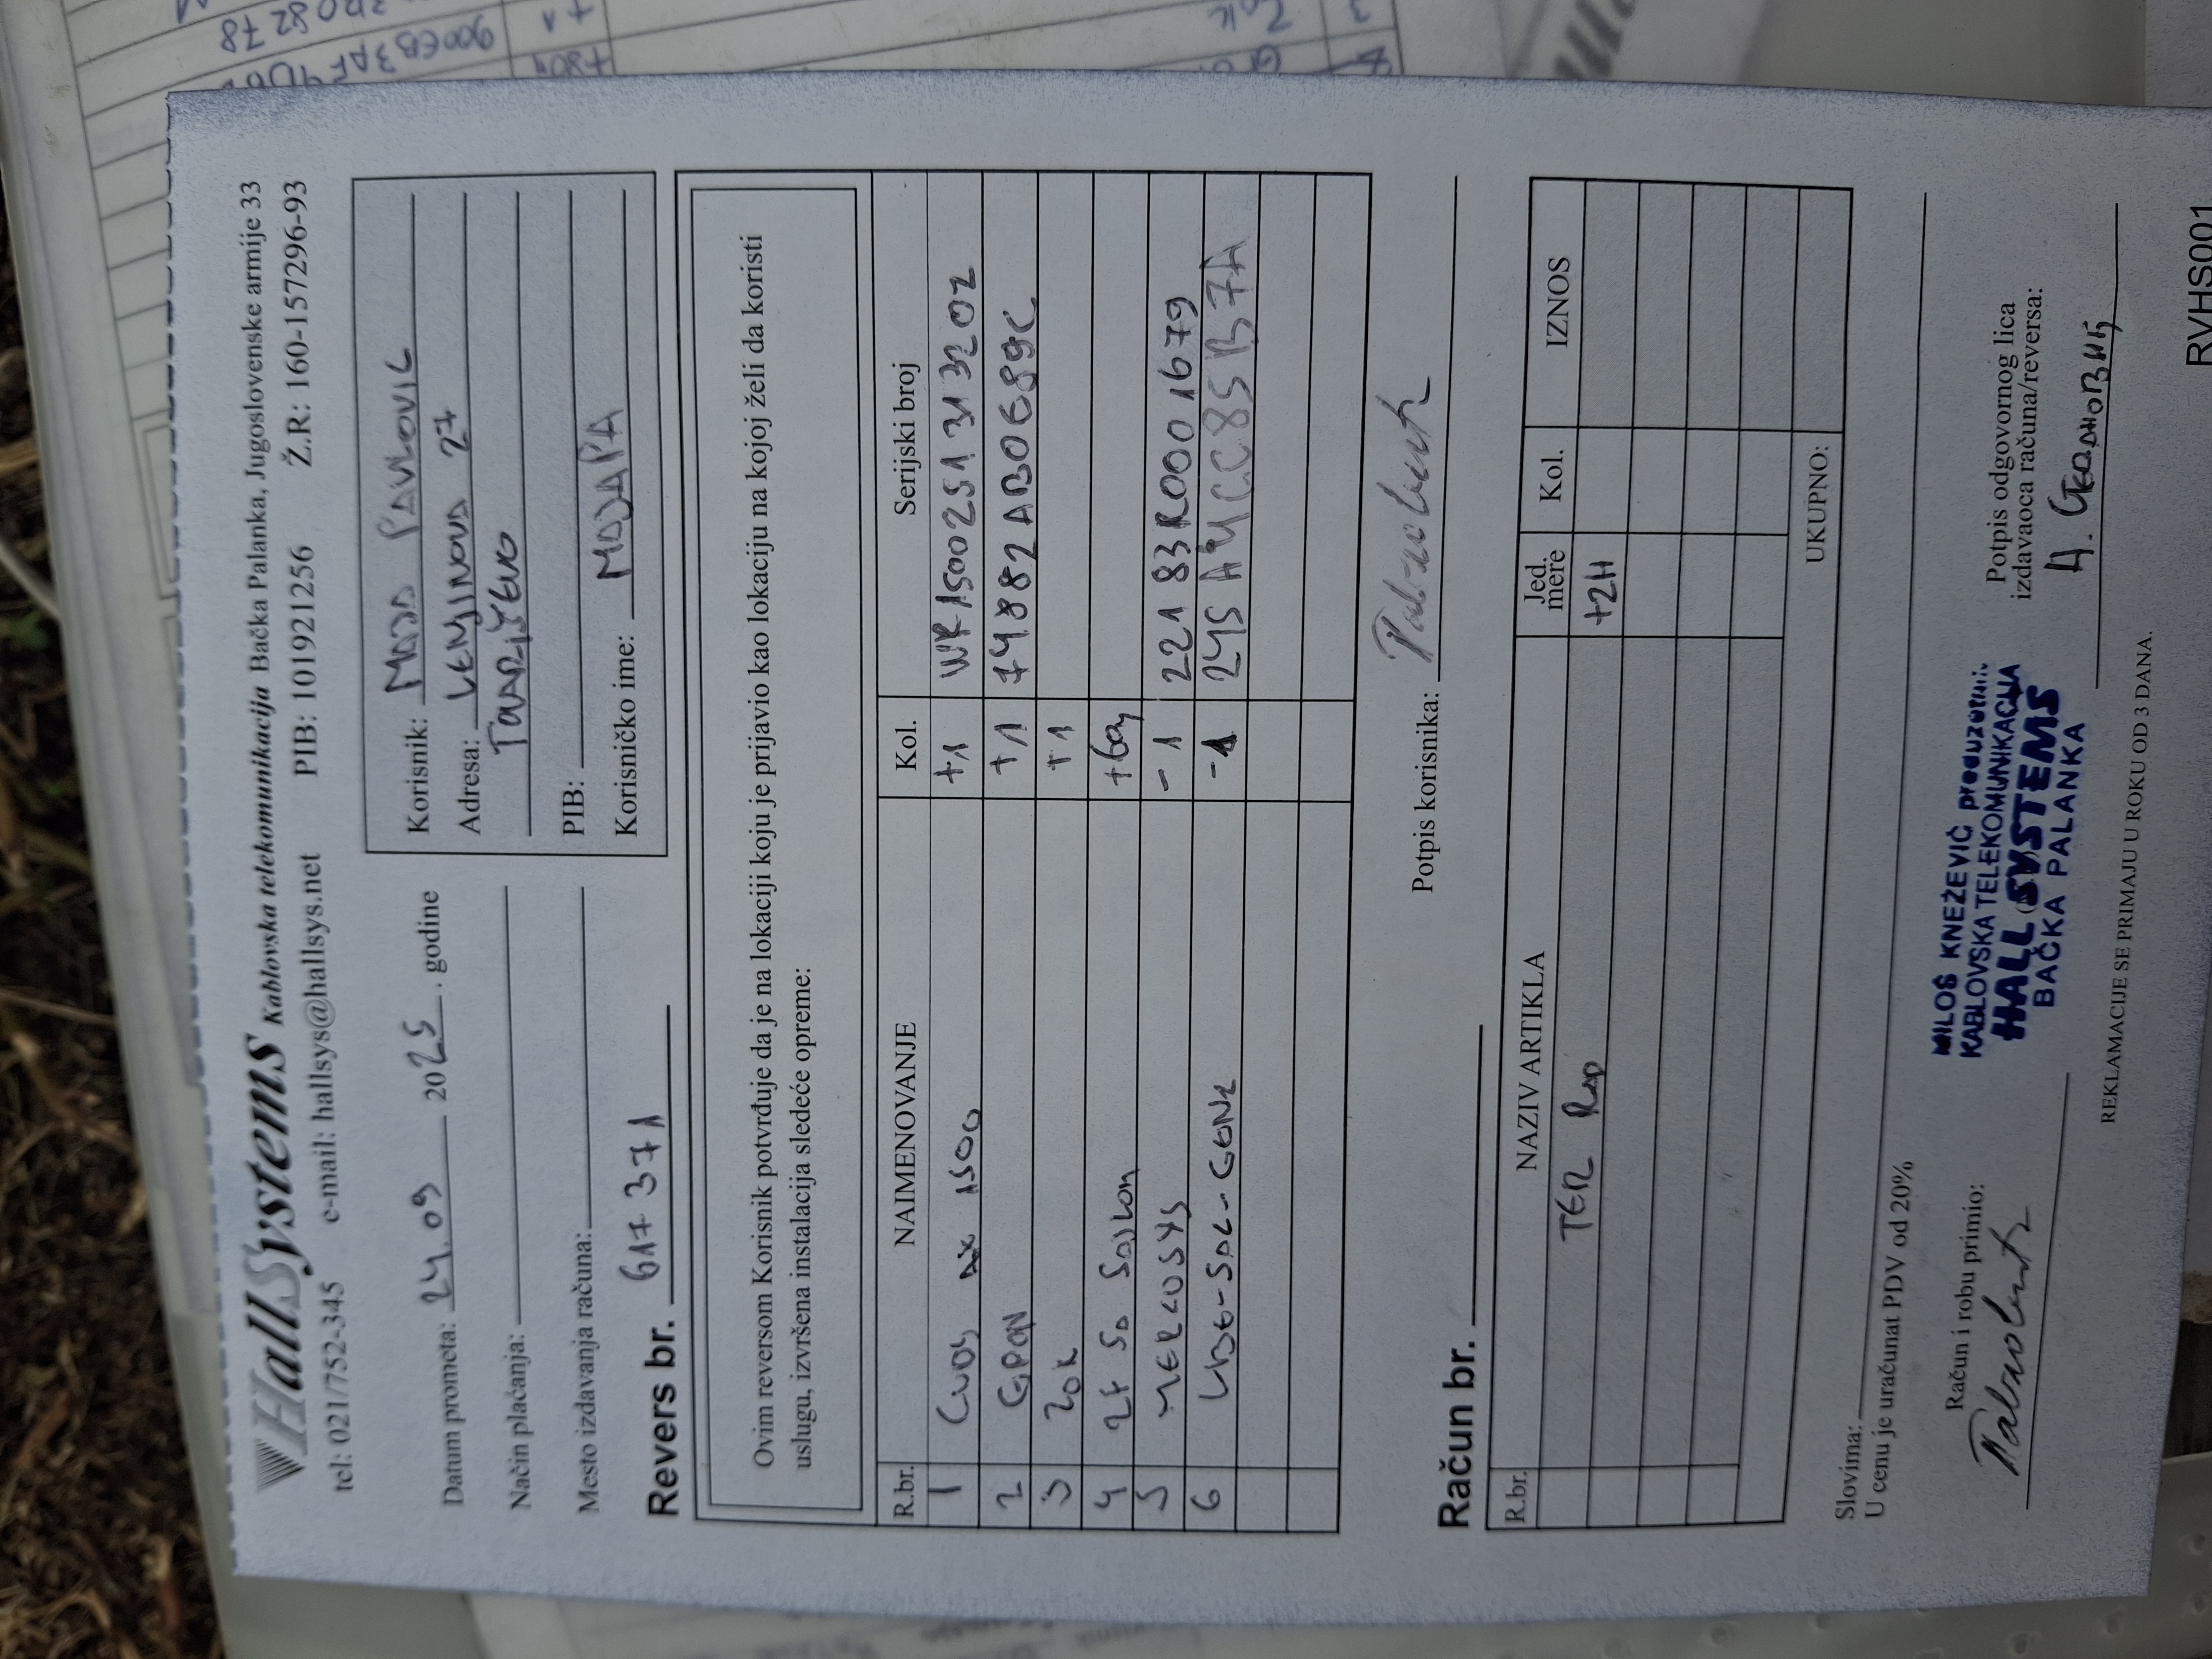 HallSystems Kablovska telekomunikacija Bačka Palanka, Jugoslovenske armije 33
tel: 021/752-345 e-mail: hallsys@hallsys.net PIB: 101921256 Ž.R: 160-157296-93
Datum prometa: 24.09 2025. godine
Način plaćanja:
Mesto izdavanja računa:
Korisnik: MAJA PAVLOVIĆ
Adresa: LENJINOVA 27
PIB:
Korisničko ime: MAJAPA
Revers br. 617371
Ovim reversom Korisnik potvrđuje da je na lokaciji koju je prijavio kao lokaciju na kojoj želi da koristi
uslugu, izvršena instalacija sledeće opreme:
R.br. NAIMENOVANJE Kol. Serijski broj
1 CUDY AX 1500 +1 WR1500251313202
2 GPON +1 74882AB0E89C
3 ZOK +1
4 2F SA SAJLOM
5 MERCUSYS -1 22183R0001679
6 UBG-SAC-GEN2 -1 245A4CC85B7A
Potpis korisnika:
Račun br.
R.br. NAZIV ARTIKLA Jed. mere Kol. IZNOS
TER RAD +2H
UKUPNO:
Slovima:
U cenu je uračunat PDV od 20%
Račun i robu primio:
MILOŠ KNEŽEVIĆ preduzetnik
KABLOVSKA TELEKOMUNIKACIJA
HALL SYSTEMS
BAČKA PALANKA
Potpis odgovornog lica
izdavaoca računa/reversa:
REKLAMACIJE SE PRIMAJU U ROKU OD 3 DANA.
RVHS001